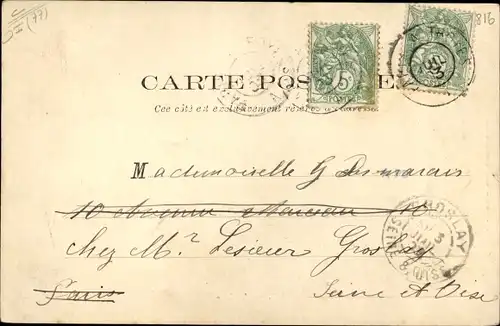 (77)
816
CARTE POSTALE
Ce côté est exclusivement réservé à l'adresse
5
POSTES
Mademoiselle G Desmarais
10 avenue Marceau 10
chez Mr Lesieur Groslay
Paris Seine et Oise
GROSLAY